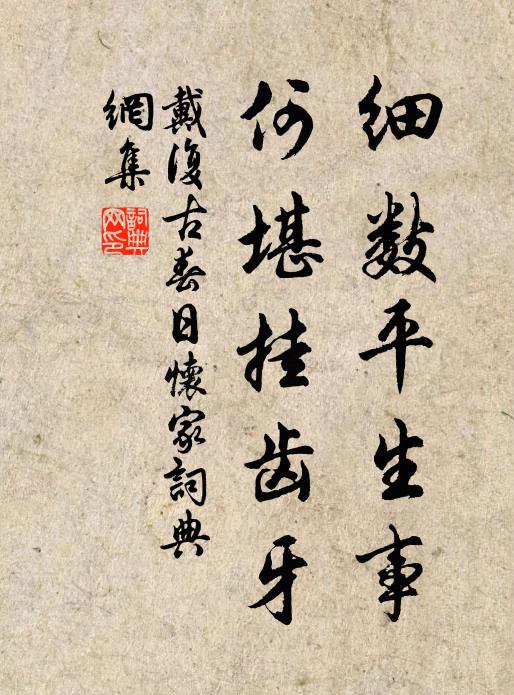 细数平生事
何堪挂齿牙
戴復古春日懷家詞典
網集
詞典
网印